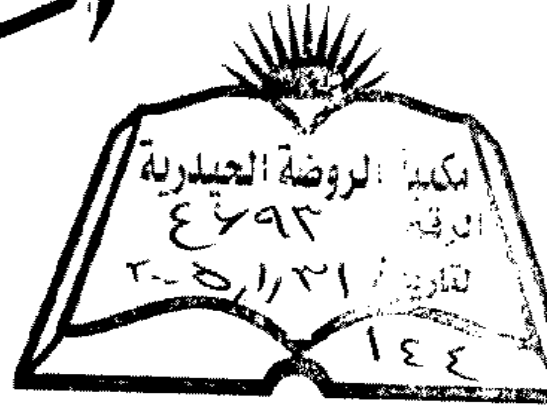 مكتبة الروضة الحيدرية
الرقم ٤٦٩٣
التاريخ ٣١/١/٢٠٠٥
١٤٤